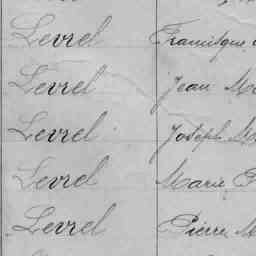 Levrel Francisque
Levrel Jean
Levrel Joseph
Levrel Marie
Levrel Pierre